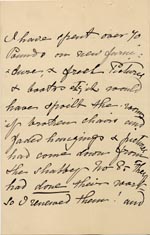 I have spent over 70
Pounds on new furni-
-ture & fresh Pictures
& books etc which would
have spoilt the rooms
if broken chairs and
faded hangings & pictures
had come down from
the shabby No 5. They
had done their work
So I renewed them: and